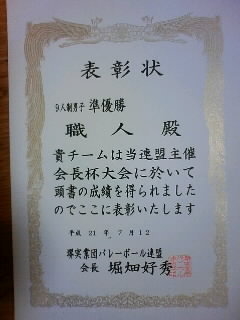 表彰状
9人制男子 準優勝
職人殿
貴チームは当連盟主催
会長杯大会に於いて
頭書の成績を得られました
のでここに表彰いたします
平成 21年 7月12
堺実業団バレーボール連盟
会長 堀畑好秀